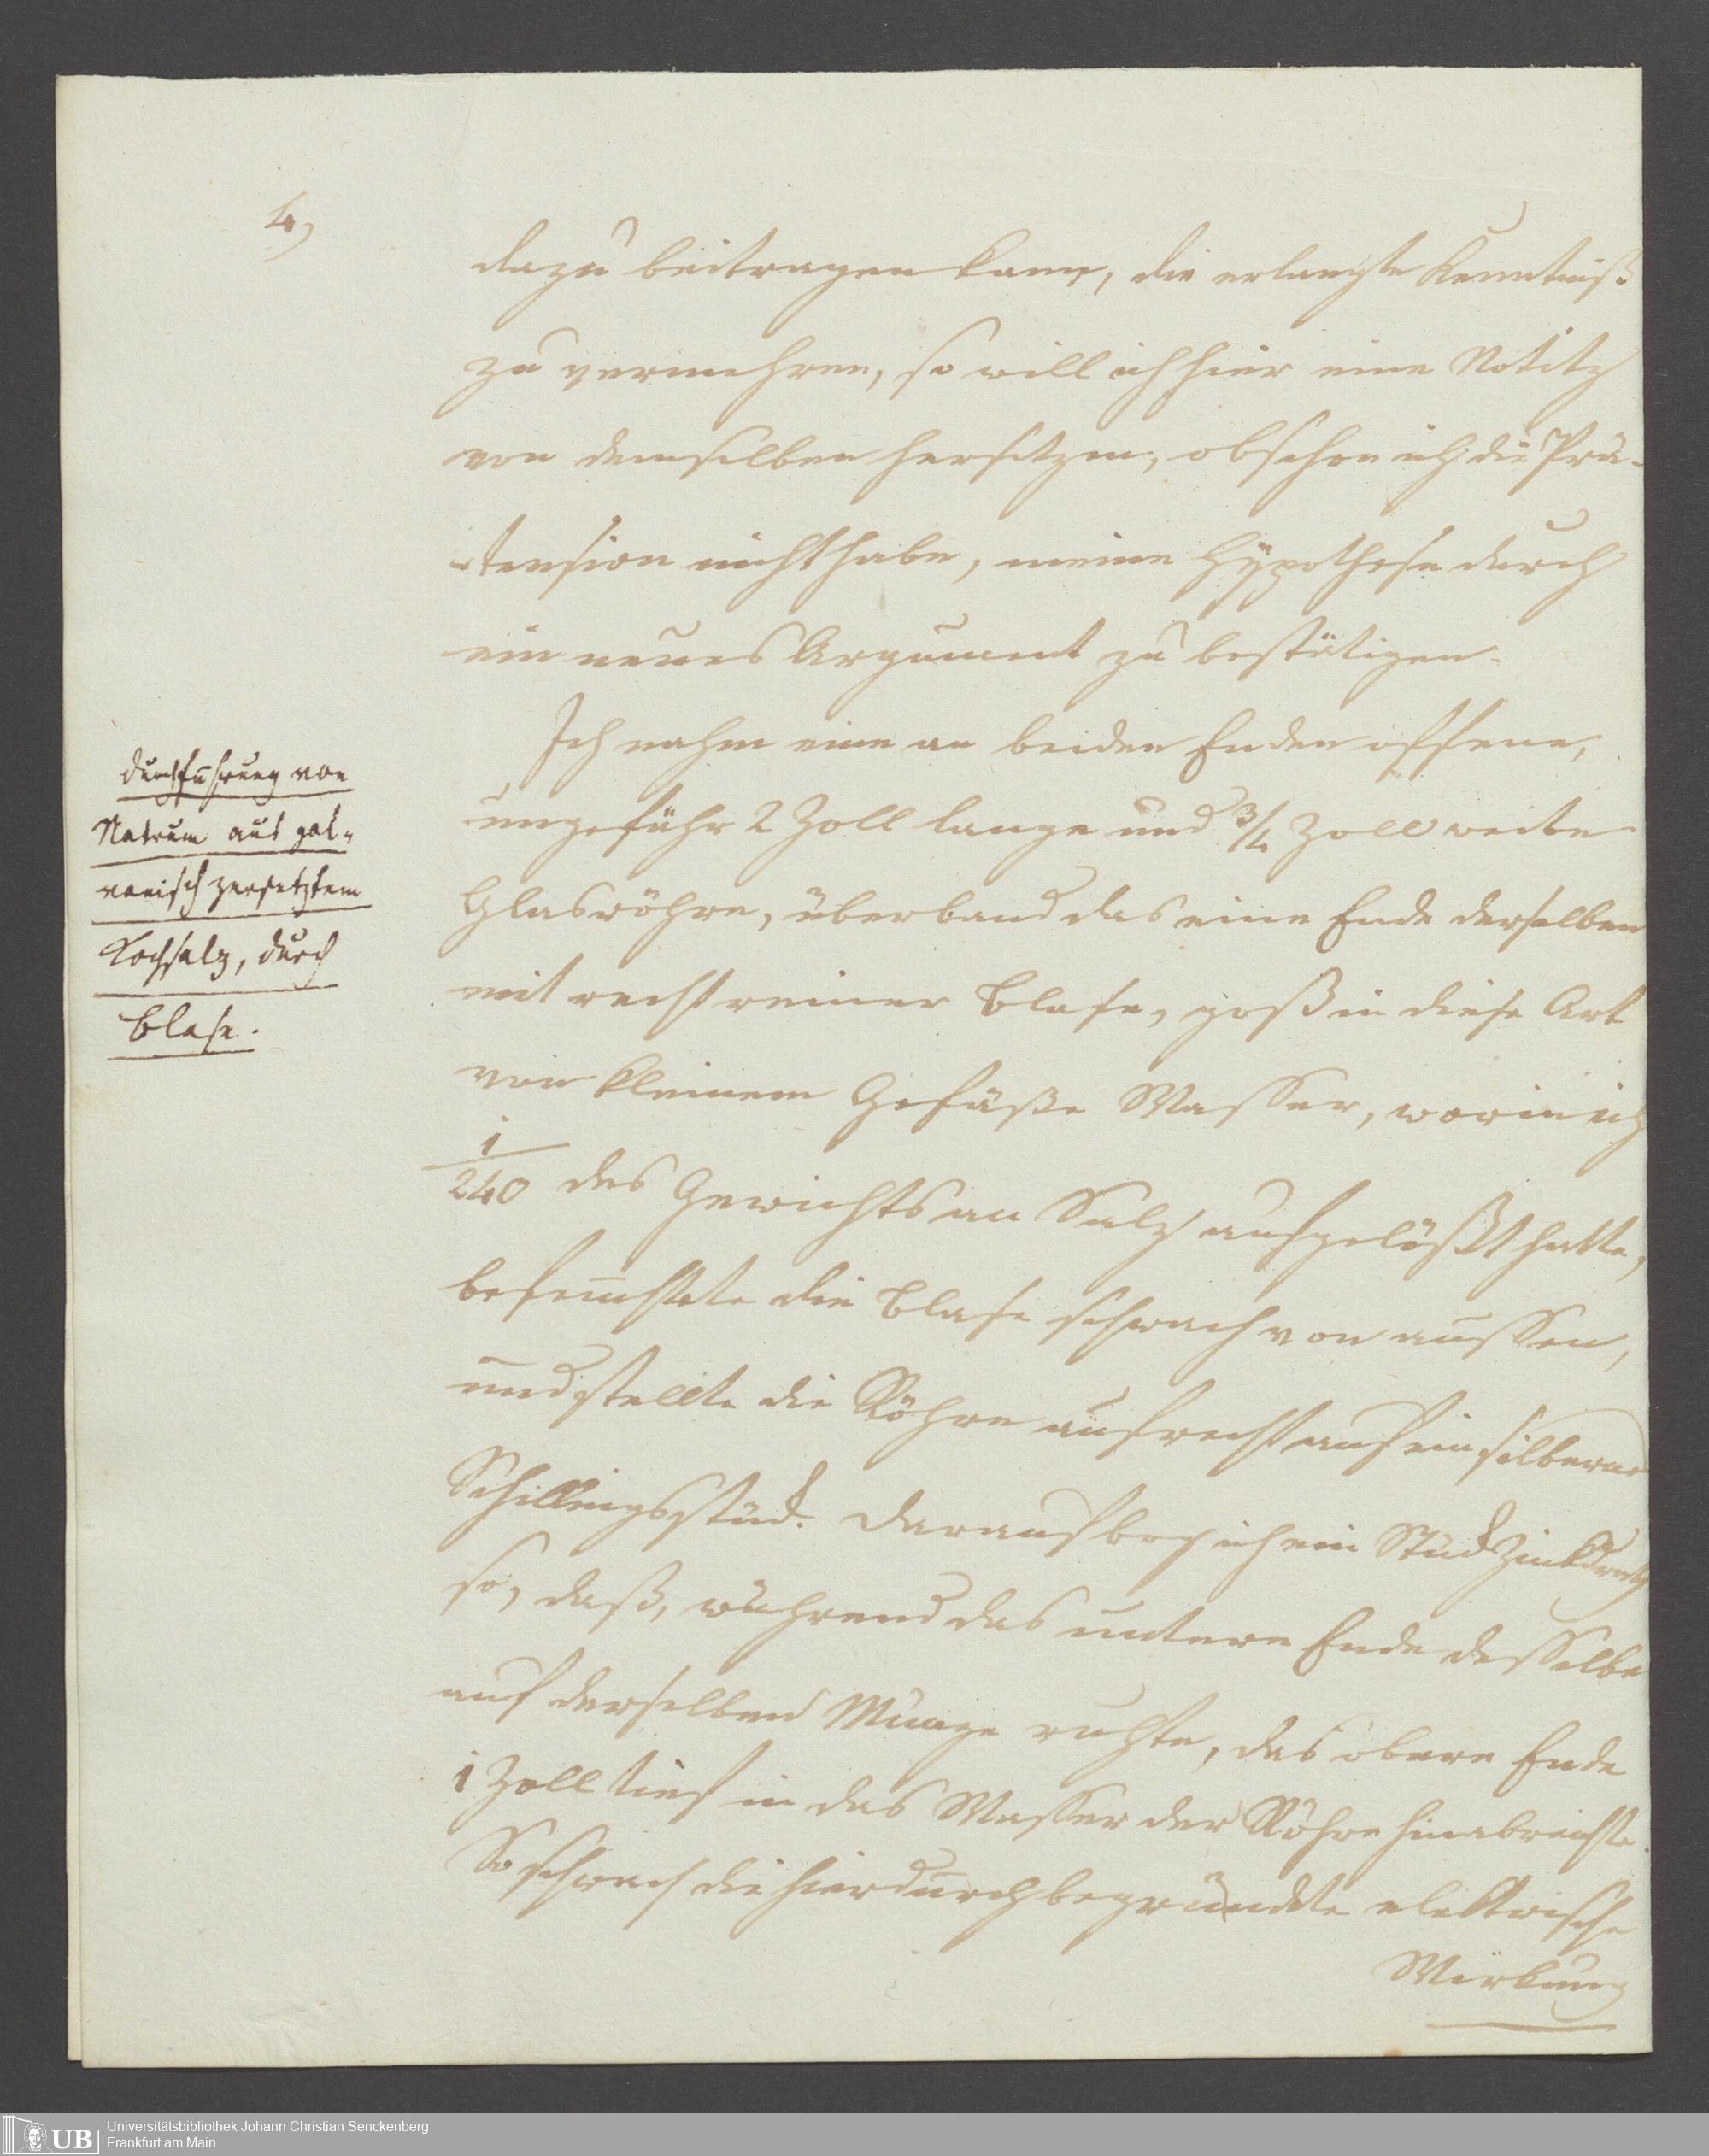 4,
dazu beitragen kann, die erlangte Kenntniß
zu vermehren, so will ich hier eine Notitz
von demselben hersetzen, obschon ich die Prä-
-tension nicht habe, meine Hypothese durch
ein neues Argument zu bestätigen.
Ich nahm eine an beiden Enden offene,
ungefähr 2 Zoll lange und 3/4 Zoll weite
Glasröhre, überband das eine Ende derselben
mit recht reiner Blase, goß in diese Art
von kleinem Gefäße Wasser, worin ich
1/240 des Gewichts an Salz aufgelößt hatte,
befeuchtete die Blase schwach von aussen,
und stellte die Röhre aufrecht auf ein silbernes
Schillingsstück. Darauf bog ich ein Stück Zinkdrath
so, daß, während das untere Ende desselben
auf derselben Munze ruhte, das obere Ende
1 Zoll tief in das Wasser der Röhre hinabreichte.
So schwach die hierdurch begründete elektrische
Wirkung
Durchführung von
Natrum aus gal-
vanisch zersetztem
Kochsalz, durch
Blase.
Universitätsbibliothek Johann Christian Senckenberg
Frankfurt am Main
UB